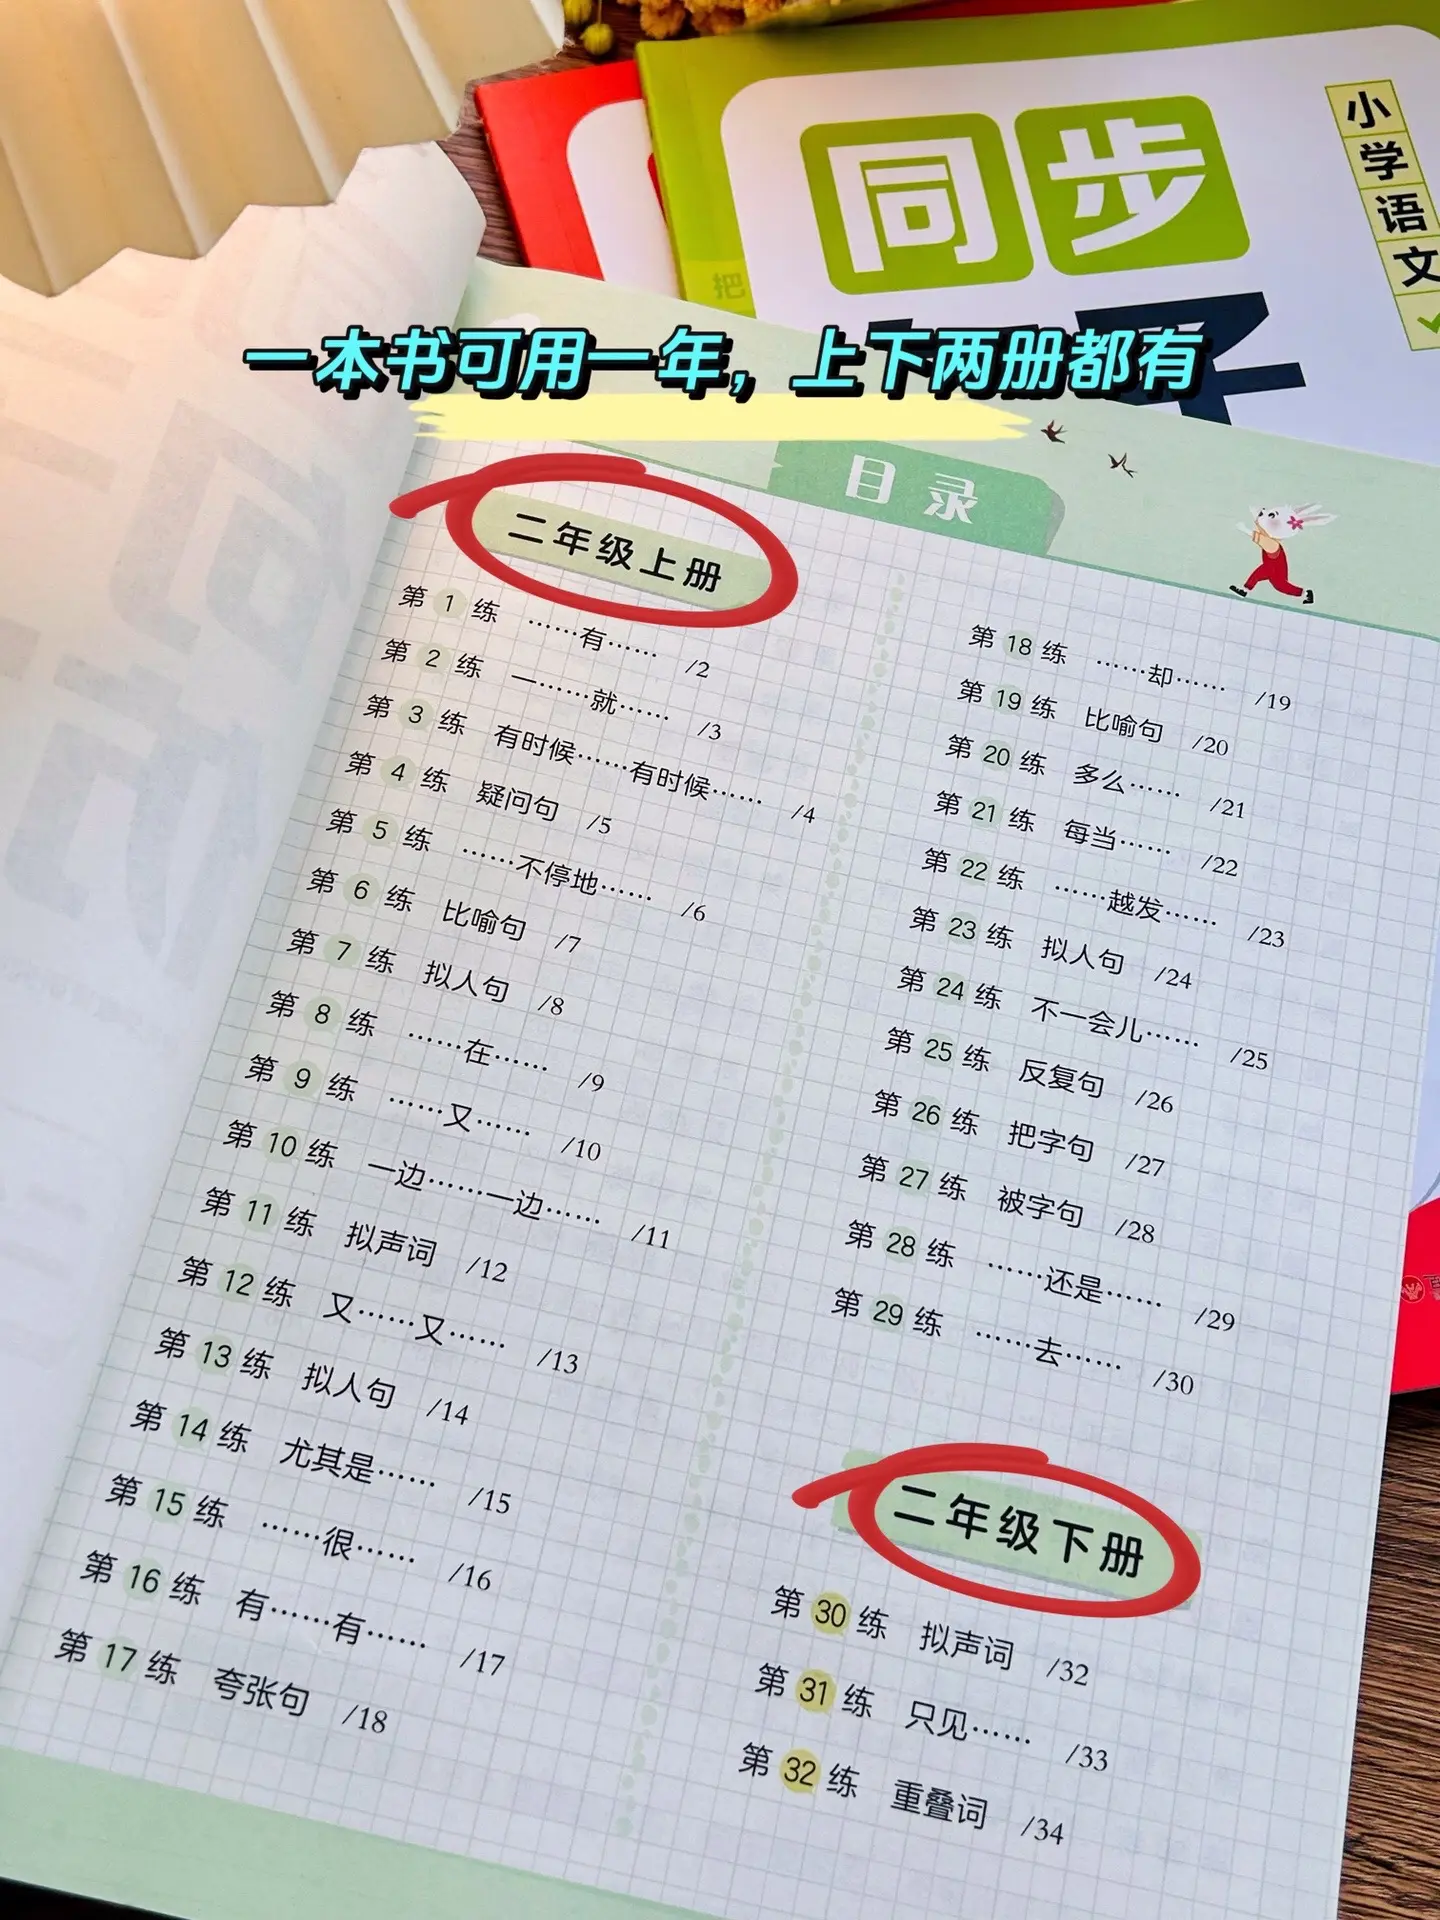 同步
小学语文
把
一本书可用一年，上下两册都有
目录
二年级上册
第1练 ……有…… /2
第2练 一……就…… /3
第3练 有时候……有时候…… /4
第4练 疑问句 /5
第5练 ……不停地…… /6
第6练 比喻句 /7
第7练 拟人句 /8
第8练 ……在…… /9
第9练 ……又…… /10
第10练 一边……一边…… /11
第11练 拟声词 /12
第12练 又……又…… /13
第13练 拟人句 /14
第14练 尤其是…… /15
第15练 ……很…… /16
第16练 有……有…… /17
第17练 夸张句 /18
第18练 ……却…… /19
第19练 比喻句 /20
第20练 多么…… /21
第21练 每当…… /22
第22练 ……越发…… /23
第23练 拟人句 /24
第24练 不一会儿…… /25
第25练 反复句 /26
第26练 把字句 /27
第27练 被字句 /28
第28练 ……还是…… /29
第29练 ……去…… /30
二年级下册
第30练 拟声词 /32
第31练 只见…… /33
第32练 重叠词 /34